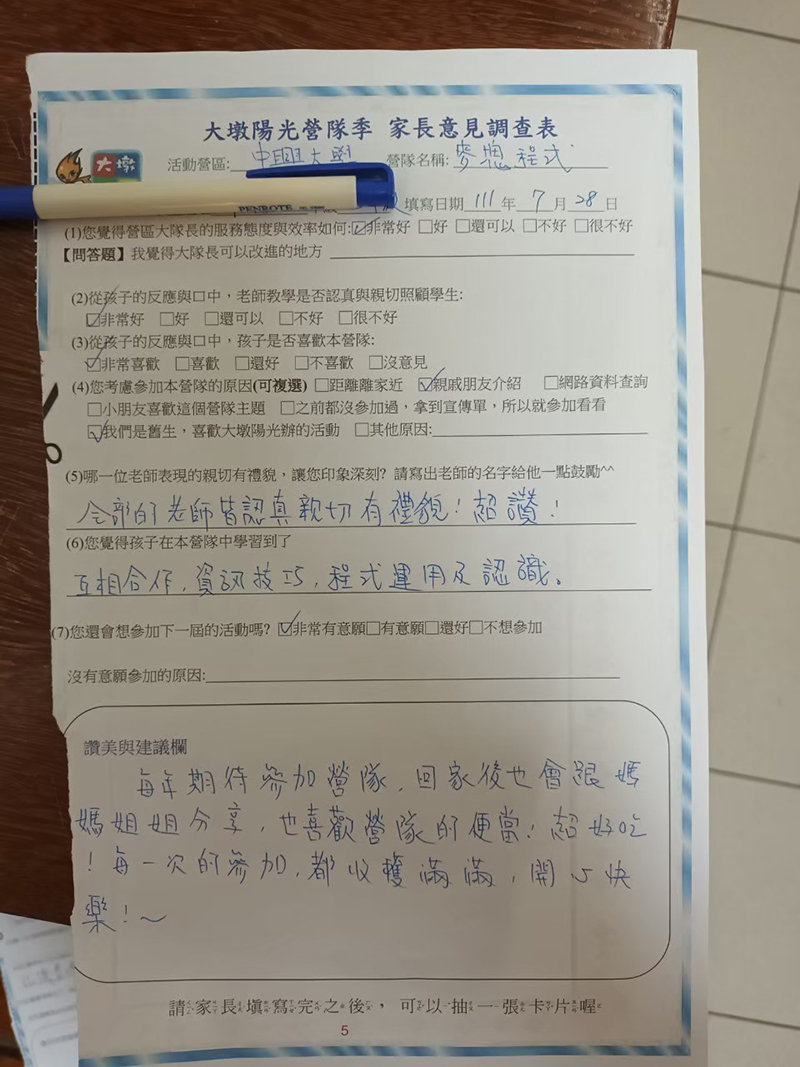 大墩陽光營隊季 家長意見調查表
大墩
活動營區:中興大學 營隊名稱:麥塊程式
PENROTE
填寫日期 111 年 7 月 28 日
(1)您覺得營區大隊長的服務態度與效率如何:☑非常好 □好 □還可以 □不好 □很不好
【問答題】我覺得大隊長可以改進的地方
(2)從孩子的反應與口中，老師教學是否認真與親切照顧學生:
☑非常好 □好 □還可以 □不好 □很不好
(3)從孩子的反應與口中，孩子是否喜歡本營隊:
☑非常喜歡 □喜歡 □還好 □不喜歡 □沒意見
(4)您考慮參加本營隊的原因(可複選) □距離離家近 ☑親戚朋友介紹 □網路資料查詢
□小朋友喜歡這個營隊主題 □之前都沒參加過，拿到宣傳單，所以就參加看看
☑我們是舊生，喜歡大墩陽光辦的活動 □其他原因:
(5)哪一位老師表現的親切有禮貌，讓您印象深刻? 請寫出老師的名字給他一點鼓勵^^
全部的老師皆認真親切有禮貌！超讚！
(6)您覺得孩子在本營隊中學習到了
互相合作，資訊技巧，程式運用及認識。
(7)您還會想參加下一屆的活動嗎? ☑非常有意願□有意願□還好□不想參加
沒有意願參加的原因:
讚美與建議欄
每年期待參加營隊，回家後也會跟媽
媽姐姐分享，也喜歡營隊的便當！超好吃
！每一次的參加，都收穫滿滿，開心快
樂！～
請家長填寫完之後， 可以抽一張卡片喔
5